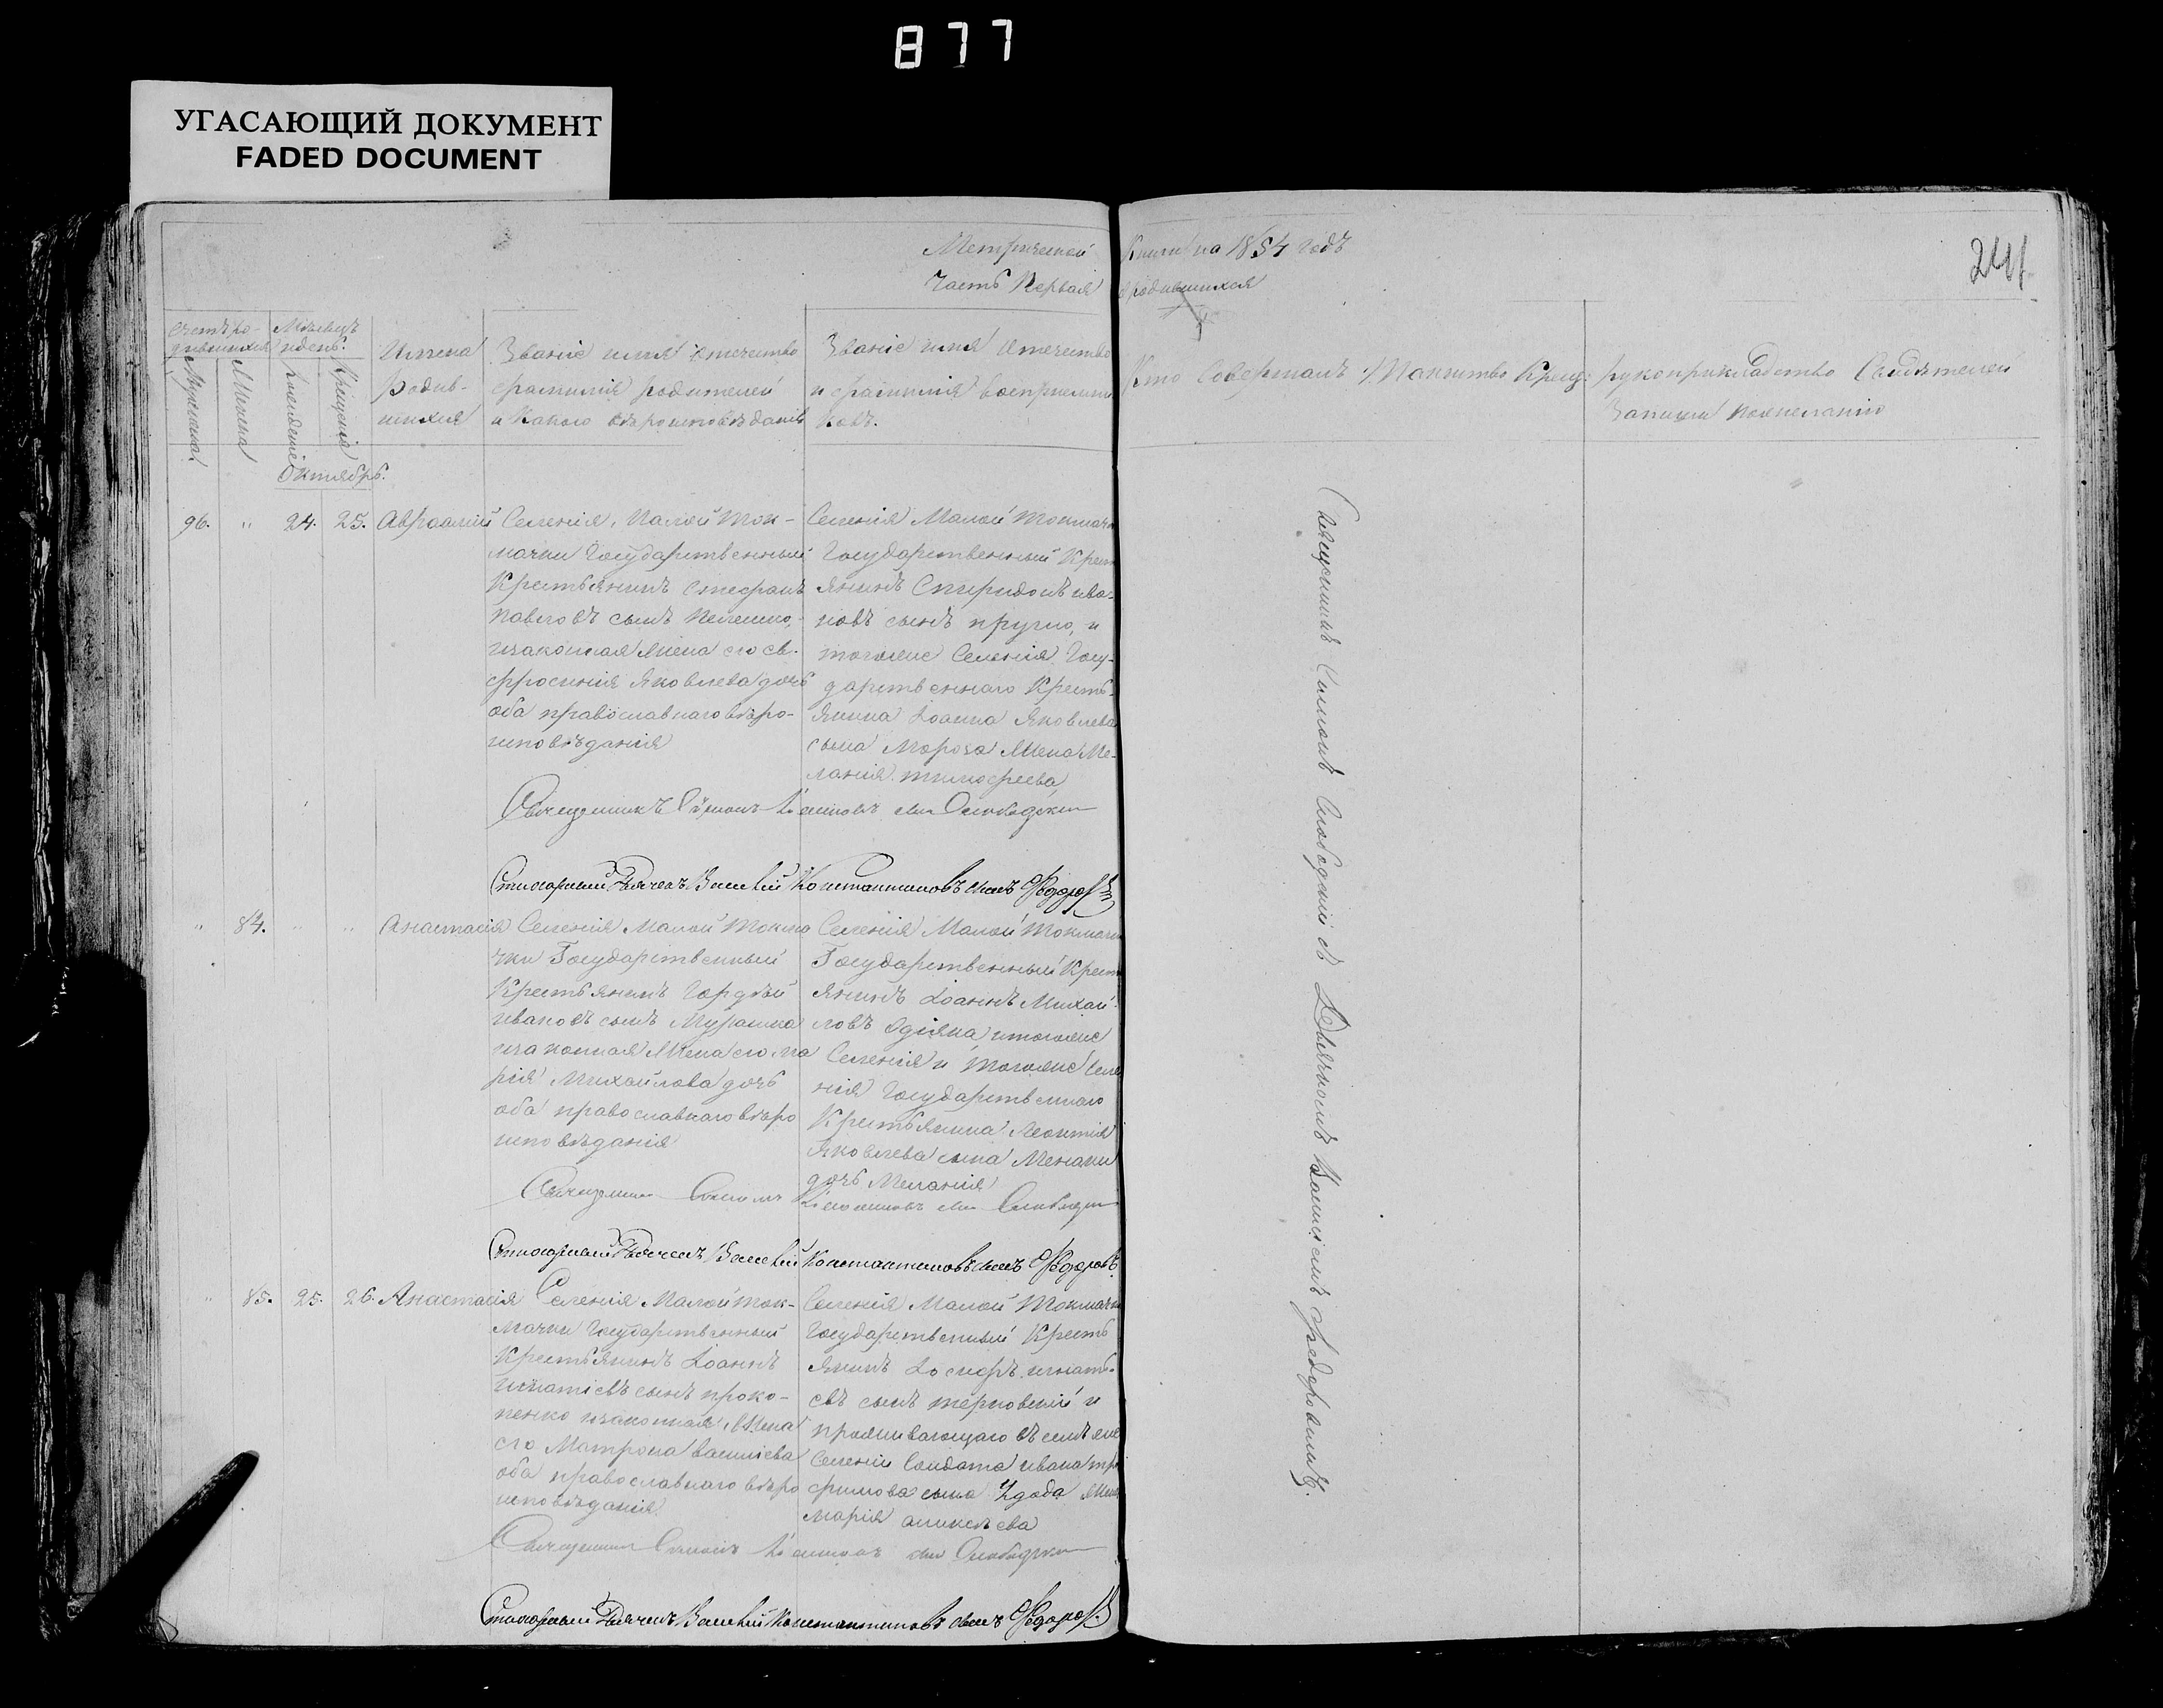 877
УГАСАЮЩИЙ ДОКУМЕНТ
FADED DOCUMENT
241
Метрической Книги на 1854 годъ
Часть Первая о родившихся
Счетъ ро-
дившихся
Мѣсяцъ
и день.
Мужеска
Женска
Рожденіе
Крещенія
Имена
родив-
шихся
Званіе имя отчество
фамилія родителей
и Какого вѣроисповѣданія
Званіе имя отчество
и фамилія воспріемни
ковъ.
Кто Совершалъ Таинство Крещ:
рукоприкладство Свидѣтелей
Записи по желанію
Октябрь.
96. " 24. 25. Авраамій
Селенія Малой Ток-
мачки Государственный
Крестьянинъ Стефанъ
Павловъ сынъ
изаконная жена его Ев-
фросинія Яковлева дочь
оба православнаго вѣро-
исповѣданія
Селенія Малой Токмачки
Государственный Крест
янинъ Спиридонъ Ива-
новъ сынъ Кругло, и
тогоже Селенія Госу-
дарственнаго Кресть-
янина Іоанна Яковлева
сына Мороза Жена Ме-
ланія Тимофеева
Священникъ Симонъ
Стихарный Дьячекъ Василій Константиновъ сынъ Федоровъ
" 84. " " Анастасія
Селенія Малой Токма
чки Государственный
Крестьянинъ Гордѣй
Ивановъ сынъ Мурашка
изаконная Жена его Ма
рія Михайлова дочь
оба православнаго вѣро
исповѣданія
Селенія Малой Токмачки
Государственный Крест
янинъ Іоаннъ Михай-
ловъ итогоже
Селенія и тогоже Селе
нія Государственнаго
Крестьянина Леонтія
Яковлева сына
дочь Меланія
Священникъ Симонъ
Стихарный Дьячекъ Василій Константиновъ сынъ Федоровъ
" 85. 25. 26. Анастасія
Селенія Малой Ток-
мачки Государственный
Крестьянинъ Іоаннъ
Игнатіевъ сынъ Проко-
пенко изаконная Жена
его Матрона Василіева
оба православнаго вѣро
исповѣданія
Селенія Малой Токмачки
Государственный Кресть
янинъ Іосифъ Игнать-
евъ сынъ Терновскій и
проживающаго въ семъ же
Селеніи Солдата Ивана Тро
фимова сына жена
Марія
Священникъ Симонъ
Стихарный Дьячекъ Василій Константиновъ сынъ Федоровъ
Священникъ Симонъ Слободскій съ Дьячкомъ Василіемъ Федоровымъ.